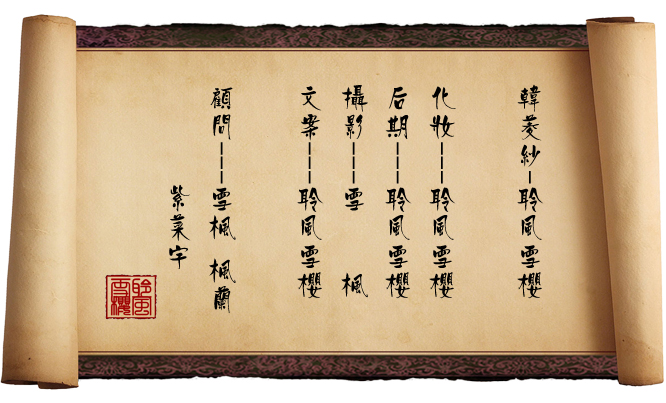 韓菱紗-聆風雪櫻
化妝---聆風雪櫻
后期---聆風雪櫻
攝影---雪 楓
文案---聆風雪櫻
顧問---雪楓 楓蘭
紫菜宇
聆風雪櫻